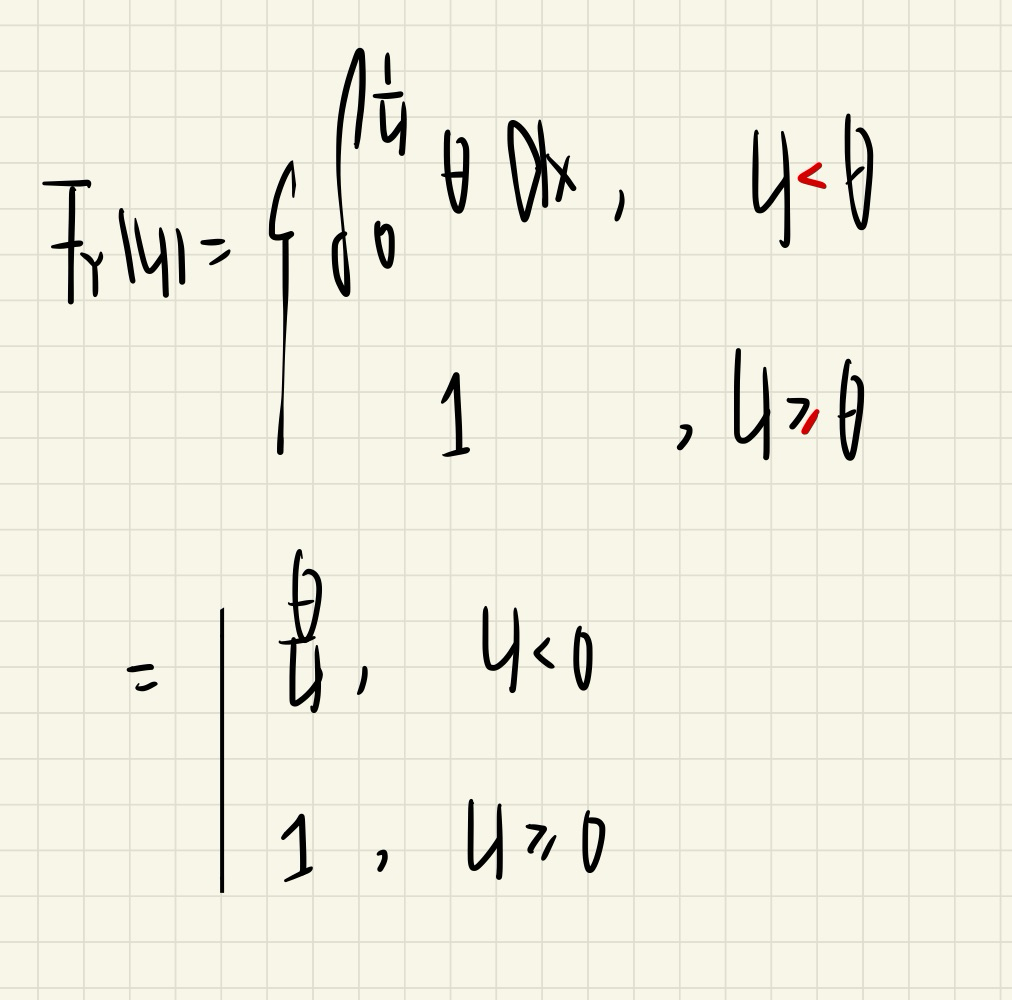 F_Y(y) = { ∫_0^{1/y} θ dx, y < θ
1, y ≥ θ
= | θ/y, y < 0
1, y ≥ 0